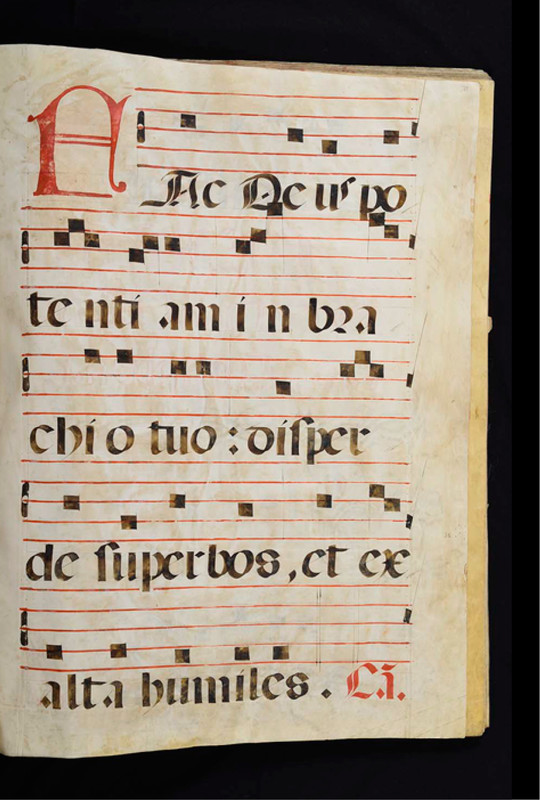 FAc Deus po
te nti am i n bra
chi o tuo : disper
de superbos, et ex
alta humiles . Cã.